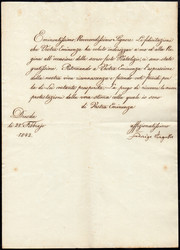 Eminentissimo Reverendissimo Signore. Le felicitazioni
che Vostra Eminenza ha voluto indirizzare a me ed alla Re
gina all'occasione delle nostre feste Natalizie ci sono state
gratissime. Ritornando a Vostra Eminenza l'espressione
della nostra viva riconoscenza
per
di Lei costante prosperità. La prego di ricevere le nuove
protestazioni della vera stima colla quale io sono
di Vostra Eminenza
Dresda
li 22 Febbrajo
1842.
Affezionatissimo
Federigo Augusto